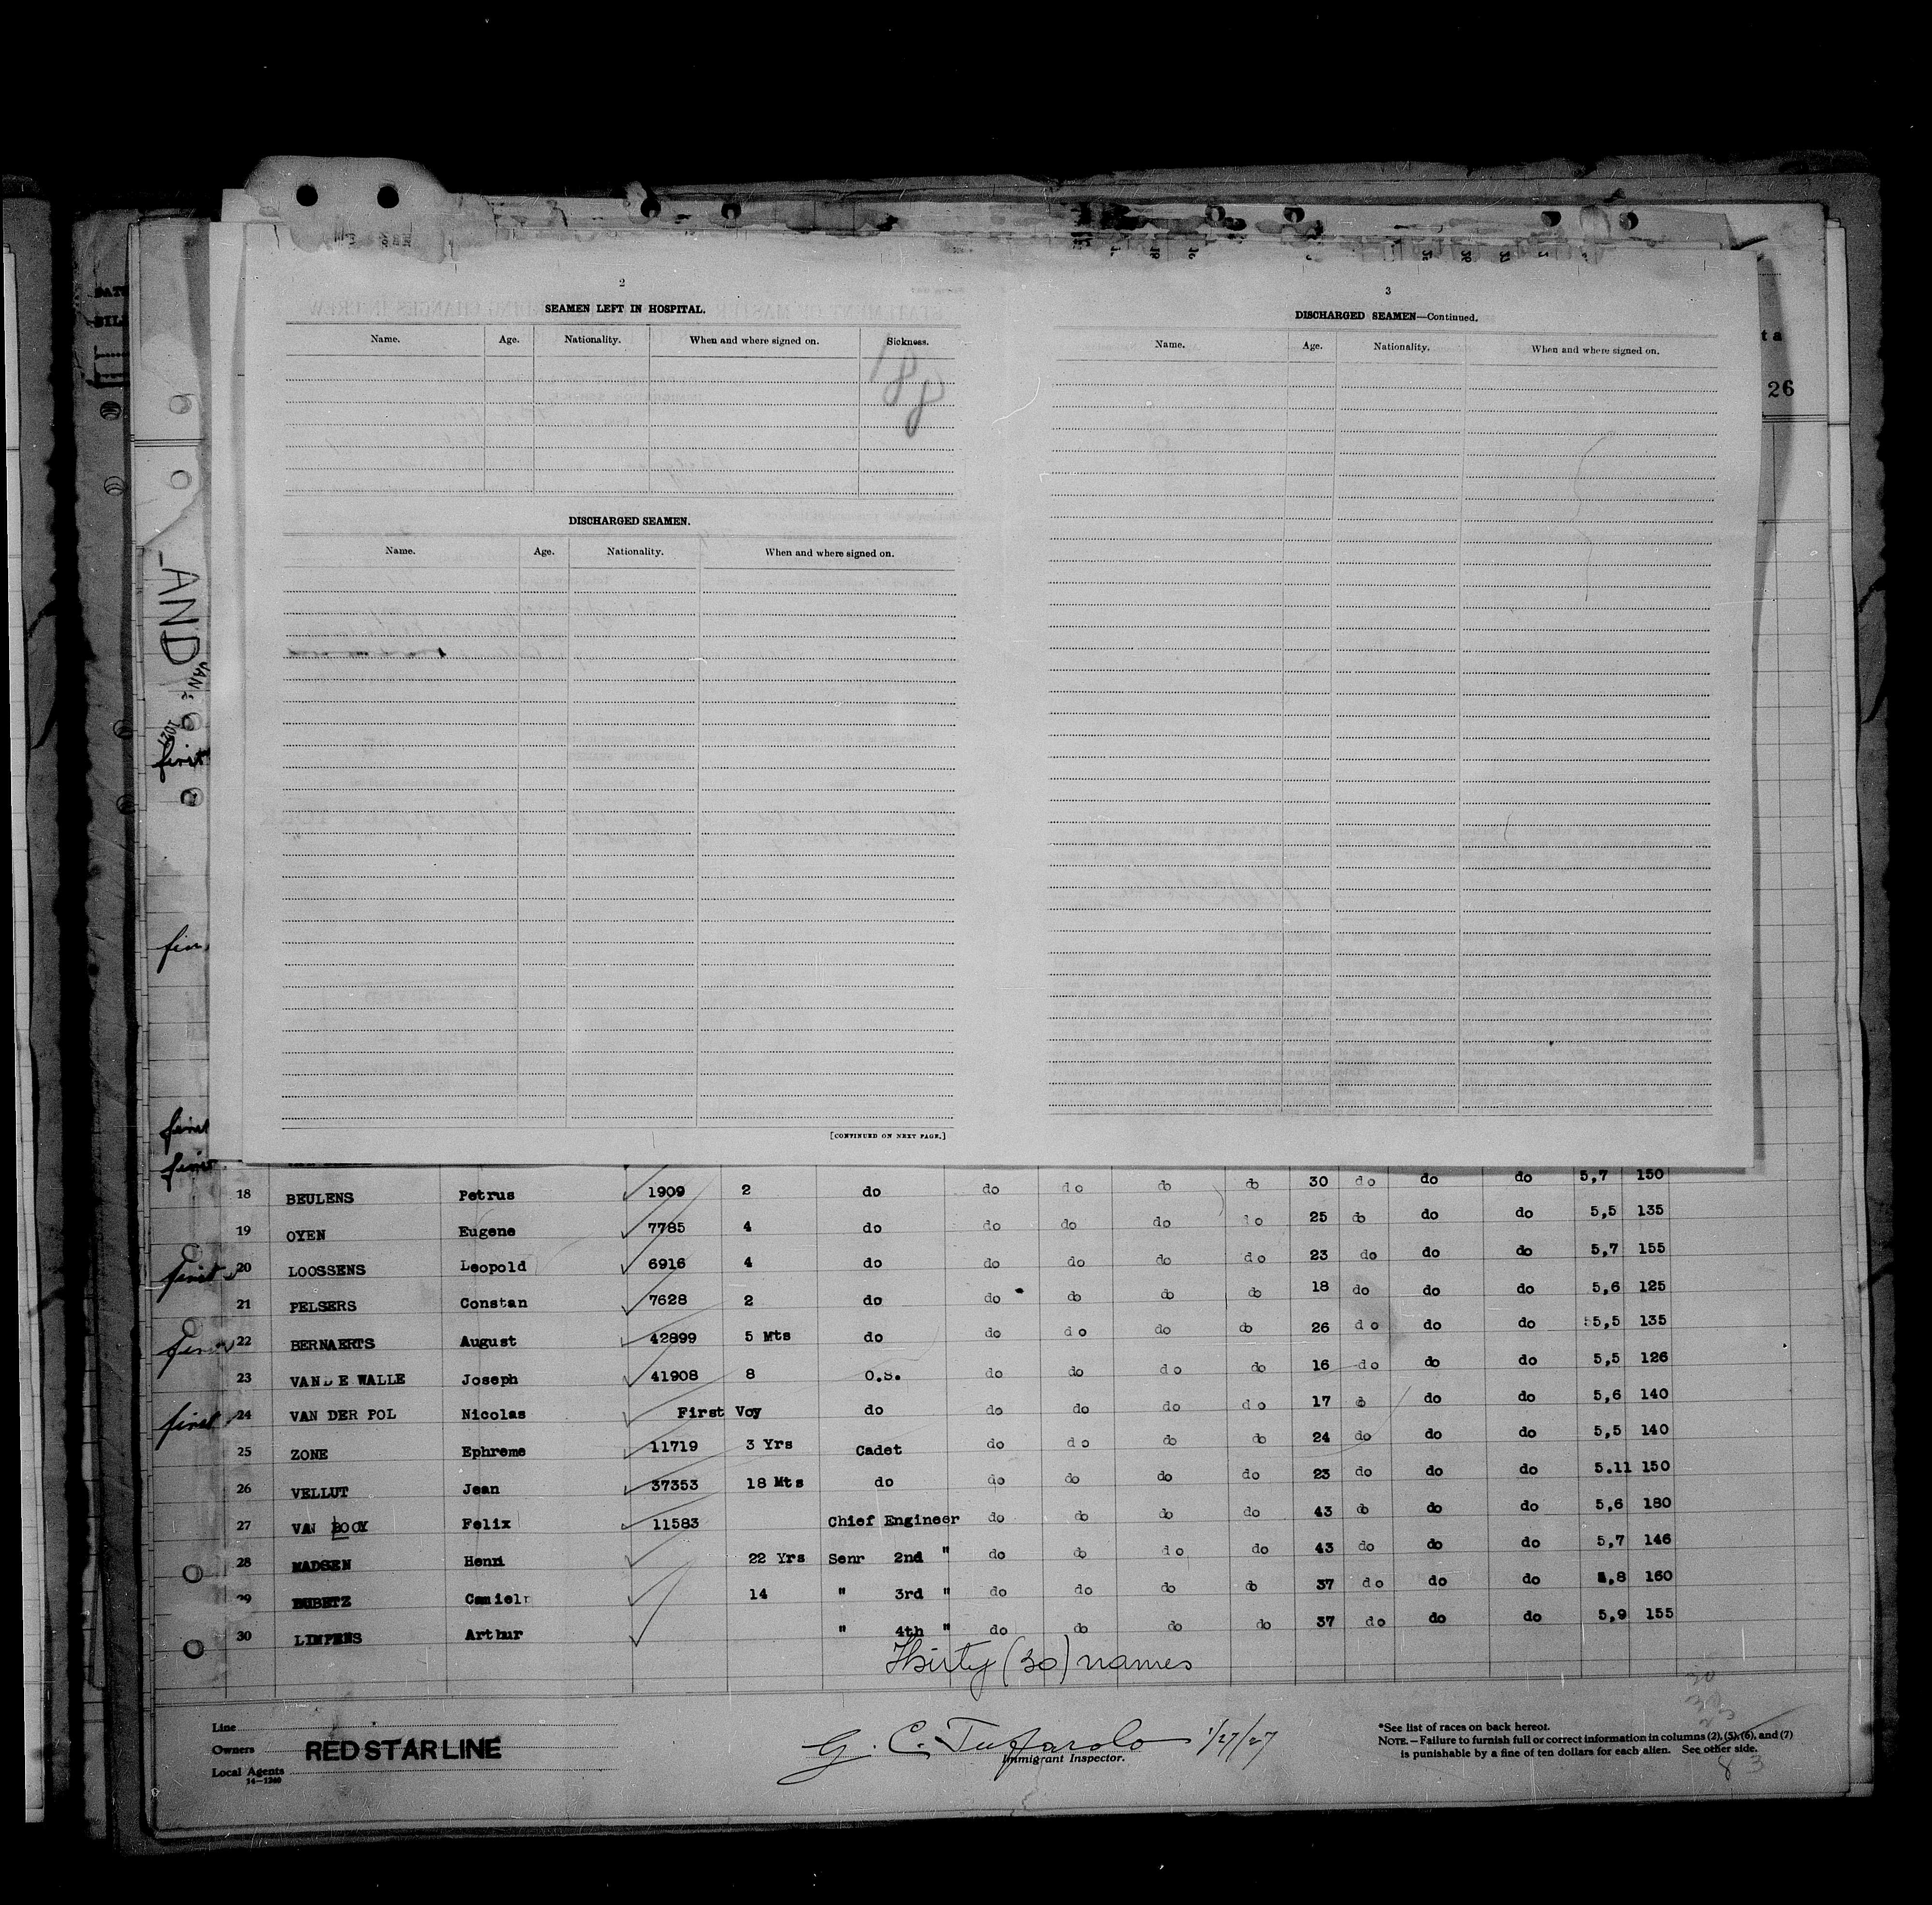 2
SEAMEN LEFT IN HOSPITAL.
Name. Age. Nationality. When and where signed on. Sickness.
DISCHARGED SEAMEN.
Name. Age. Nationality. When and where signed on.
[CONTINUED ON NEXT PAGE.]
3
DISCHARGED SEAMEN—Continued.
Name. Age. Nationality. When and where signed on.
26
LAND
first
first
first
18 BEULENS Petrus 1909 2 do do do do do 30 do do do 5,7 150
19 OYEN Eugene 7785 4 do do do do do 25 do do do 5,5 135
first 20 LOOSSENS Leopold 6916 4 do do do do do 23 do do do 5,7 155
21 PELSERS Constan 7628 2 do do do do do 18 do do do 5,6 125
first 22 BERNAERTS August 42899 5 Mts do do do do do 26 do do do 5,5 135
23 VAN DE WALLE Joseph 41908 8 O.S. do do do do 16 do do do 5,5 126
first 24 VAN DER POL Nicolas First Voy do do do do do 17 do do do 5,6 140
25 ZONE Ephreme 11719 3 Yrs Cadet do do do do 24 do do do 5,5 140
26 VELLUT Jean 37353 18 Mts do do do do do 23 do do do 5.11 150
27 VAN ROOY Felix 11583 Chief Engineer do do do do 43 do do do 5,6 180
28 MADSEN Henri 22 Yrs Senr 2nd " do do do do 43 do do do 5,7 146
29 Camiel 14 " 3rd " do do do do 37 do do do 160
30 LIMPENS Arthur " 4th " do do do do 37 do do do 5,9 155
Thirty (30) names
Line
Owners RED STAR LINE
Local Agents
14—1240
G. C. Tuffarolo 1/27/27
Immigrant Inspector.
*See list of races on back hereof.
NOTE.—Failure to furnish full or correct information in columns (2), (5), (6), and (7)
is punishable by a fine of ten dollars for each alien. See other side.